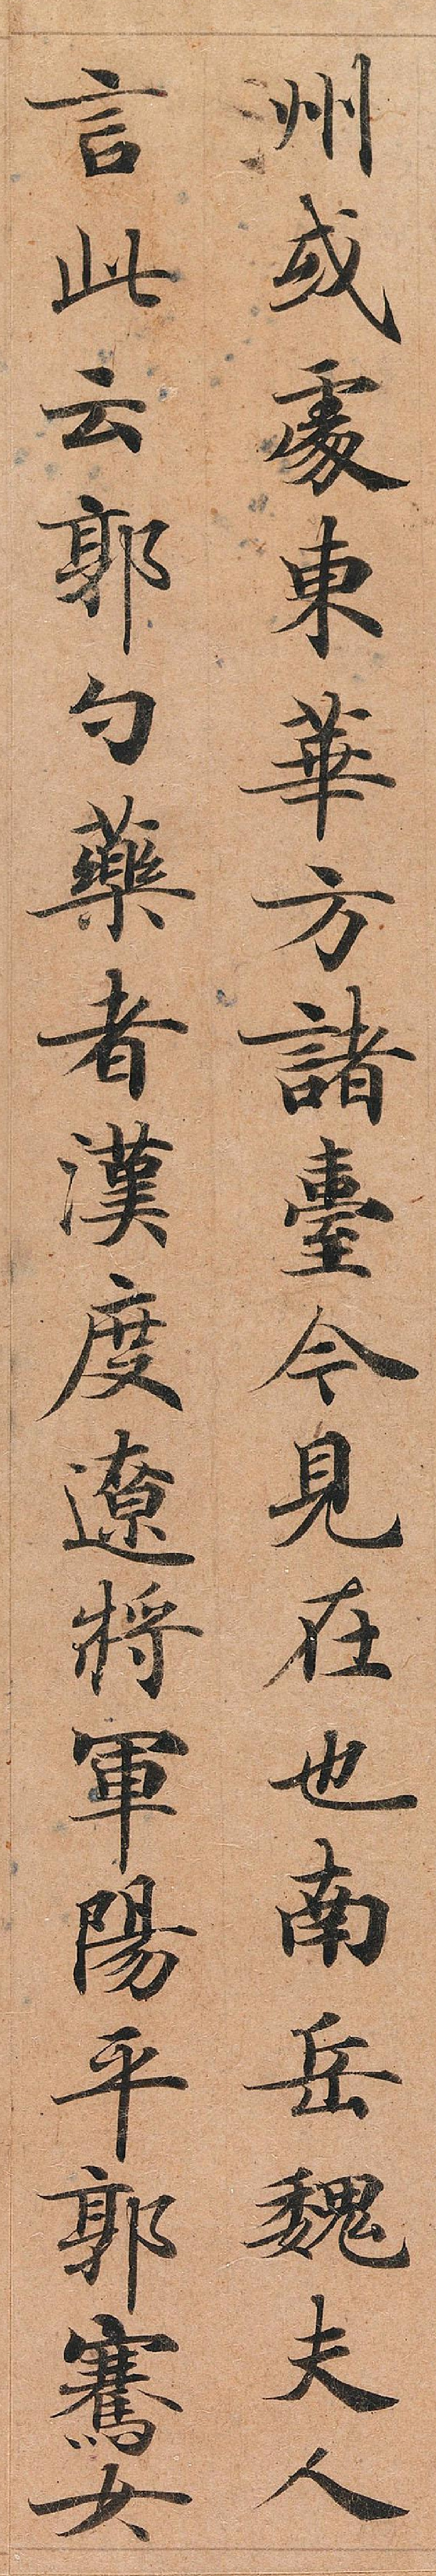 洲或處東華方諸臺今見在也南岳魏夫人
言此云郭勺藥者漢度遼將軍陽平郭騫女